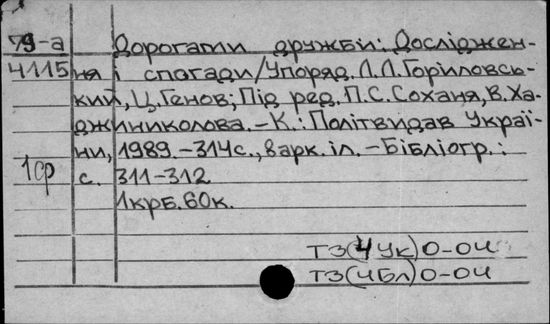 79-а Дорогами дружби: Дослiджен-
4115 ня i спогади/Упоряд. Л.Л.Горiловсь-
кий, Ц.Генов; Пiд ред. П.С.Соханя, В.Ха-
джиниколова. –К.: Полiтвидав Украї-
ни, 1989. –314с., 8 арк. iл. –Бiблiогр.:
1ср с. 311-312
1крб.60к.
Т3(4Ук)0-04
Т3(4Бл)0-04